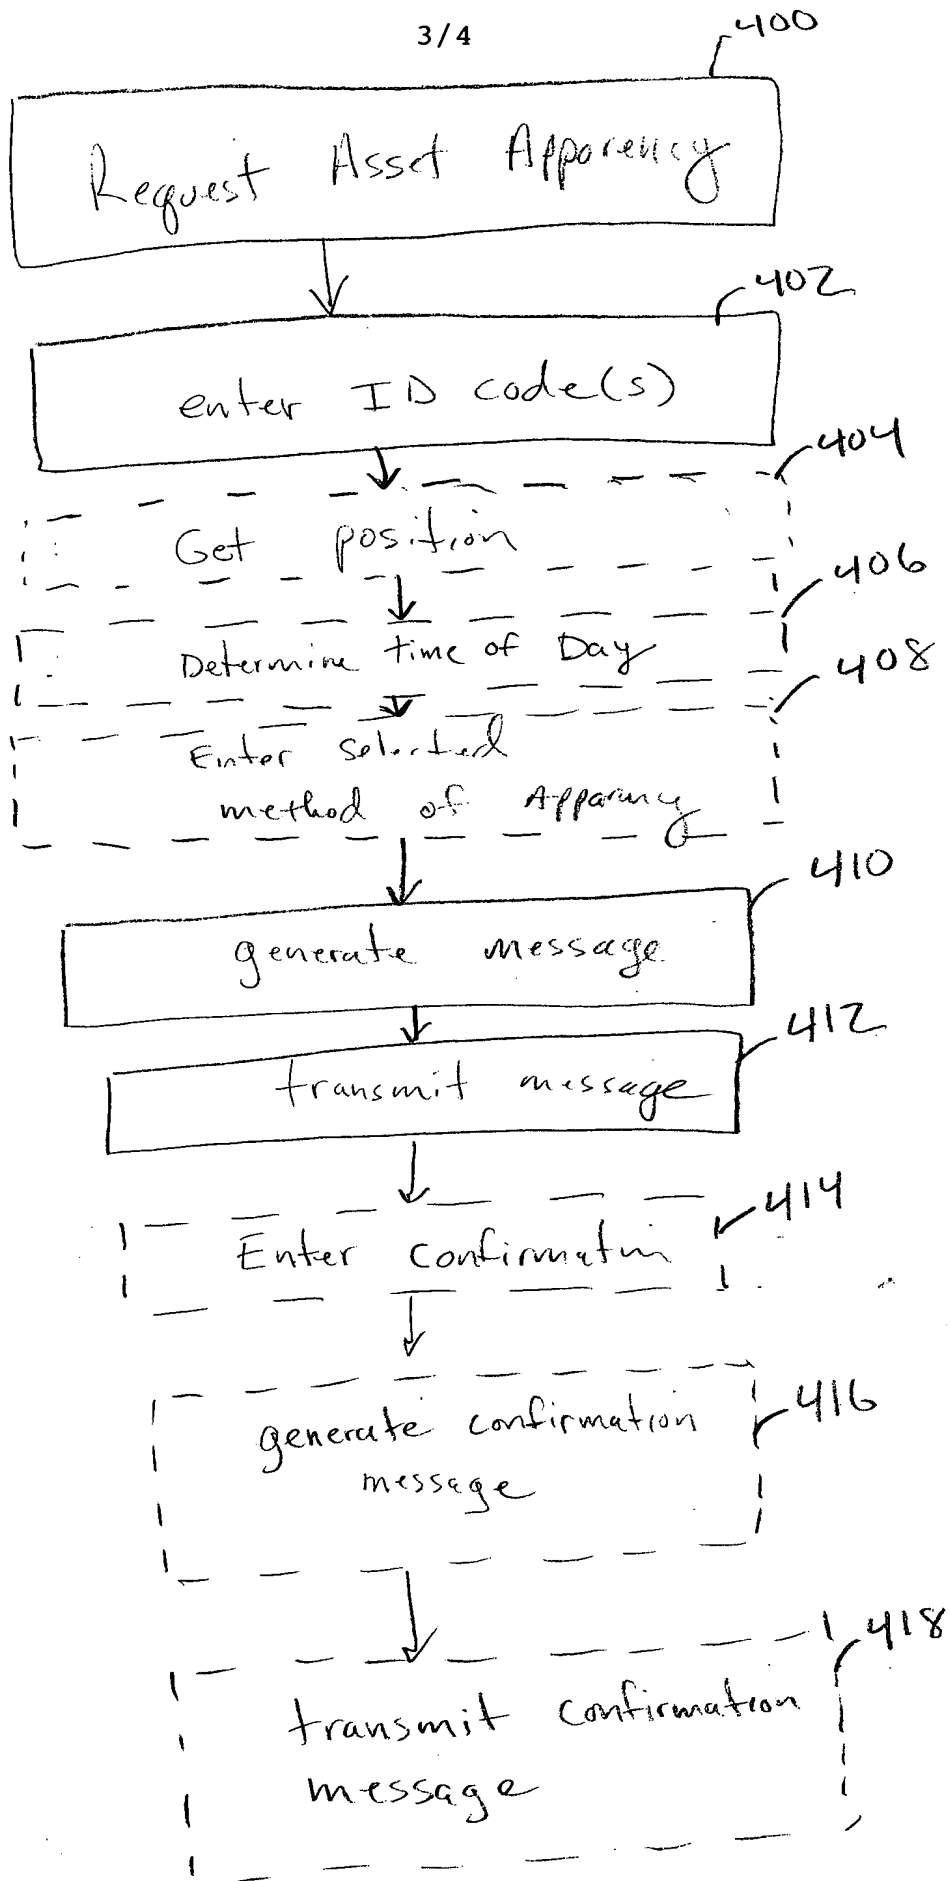 3/4
400
Request Asset Apparency
402
enter ID code(s)
404
Get position
406
Determine time of Day
408
Enter selected
method of Apparency
410
generate message
412
transmit message
414
Enter confirmation
416
generate confirmation
message
418
transmit confirmation
message